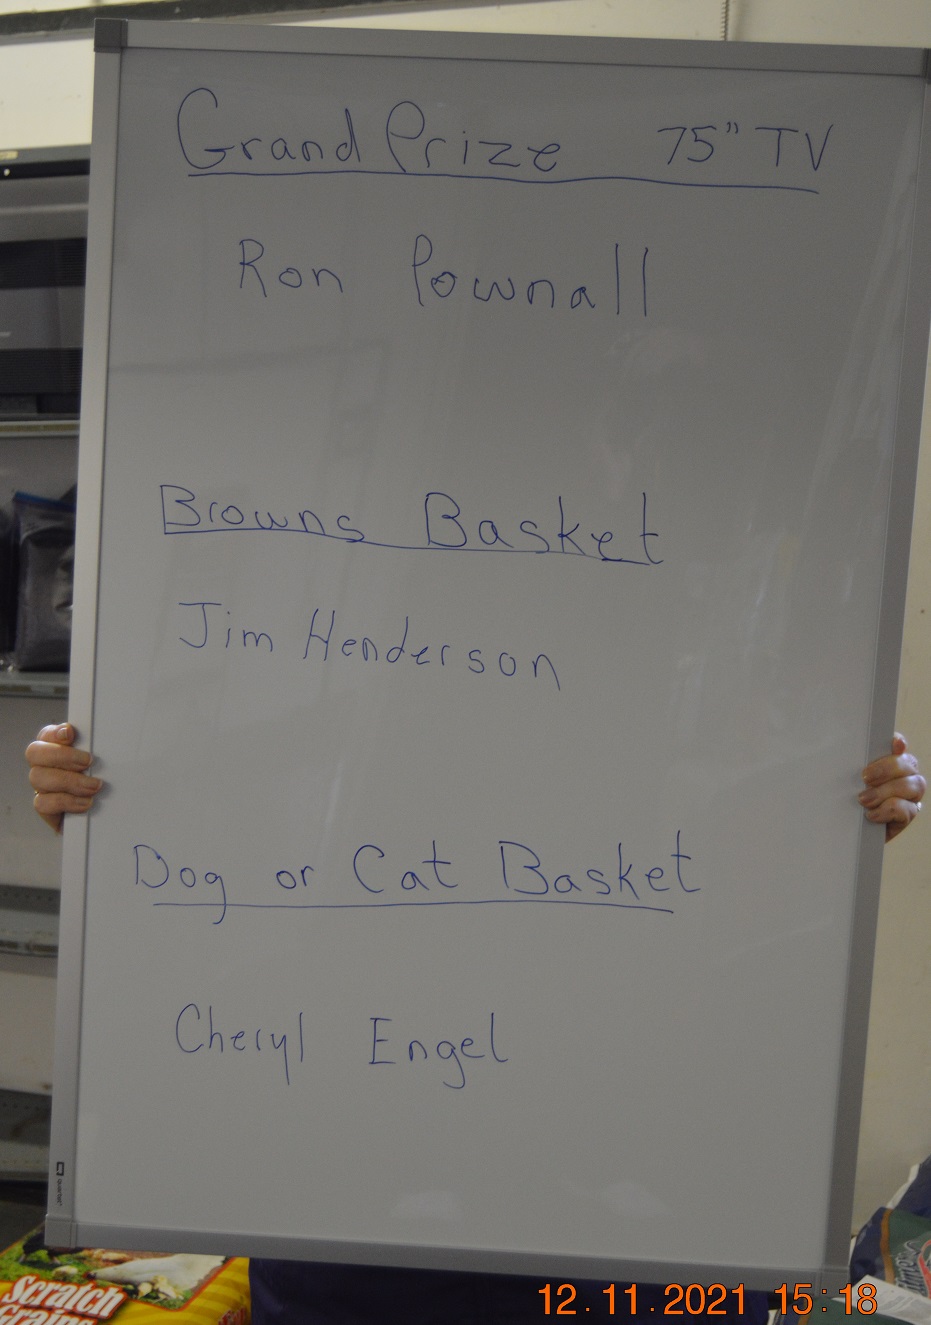 Grand Prize 75" TV
Ron Pownall
Browns Basket
Jim Henderson
Dog or Cat Basket
Cheryl Engel
Scratch
Grains
12.11.2021 15:18